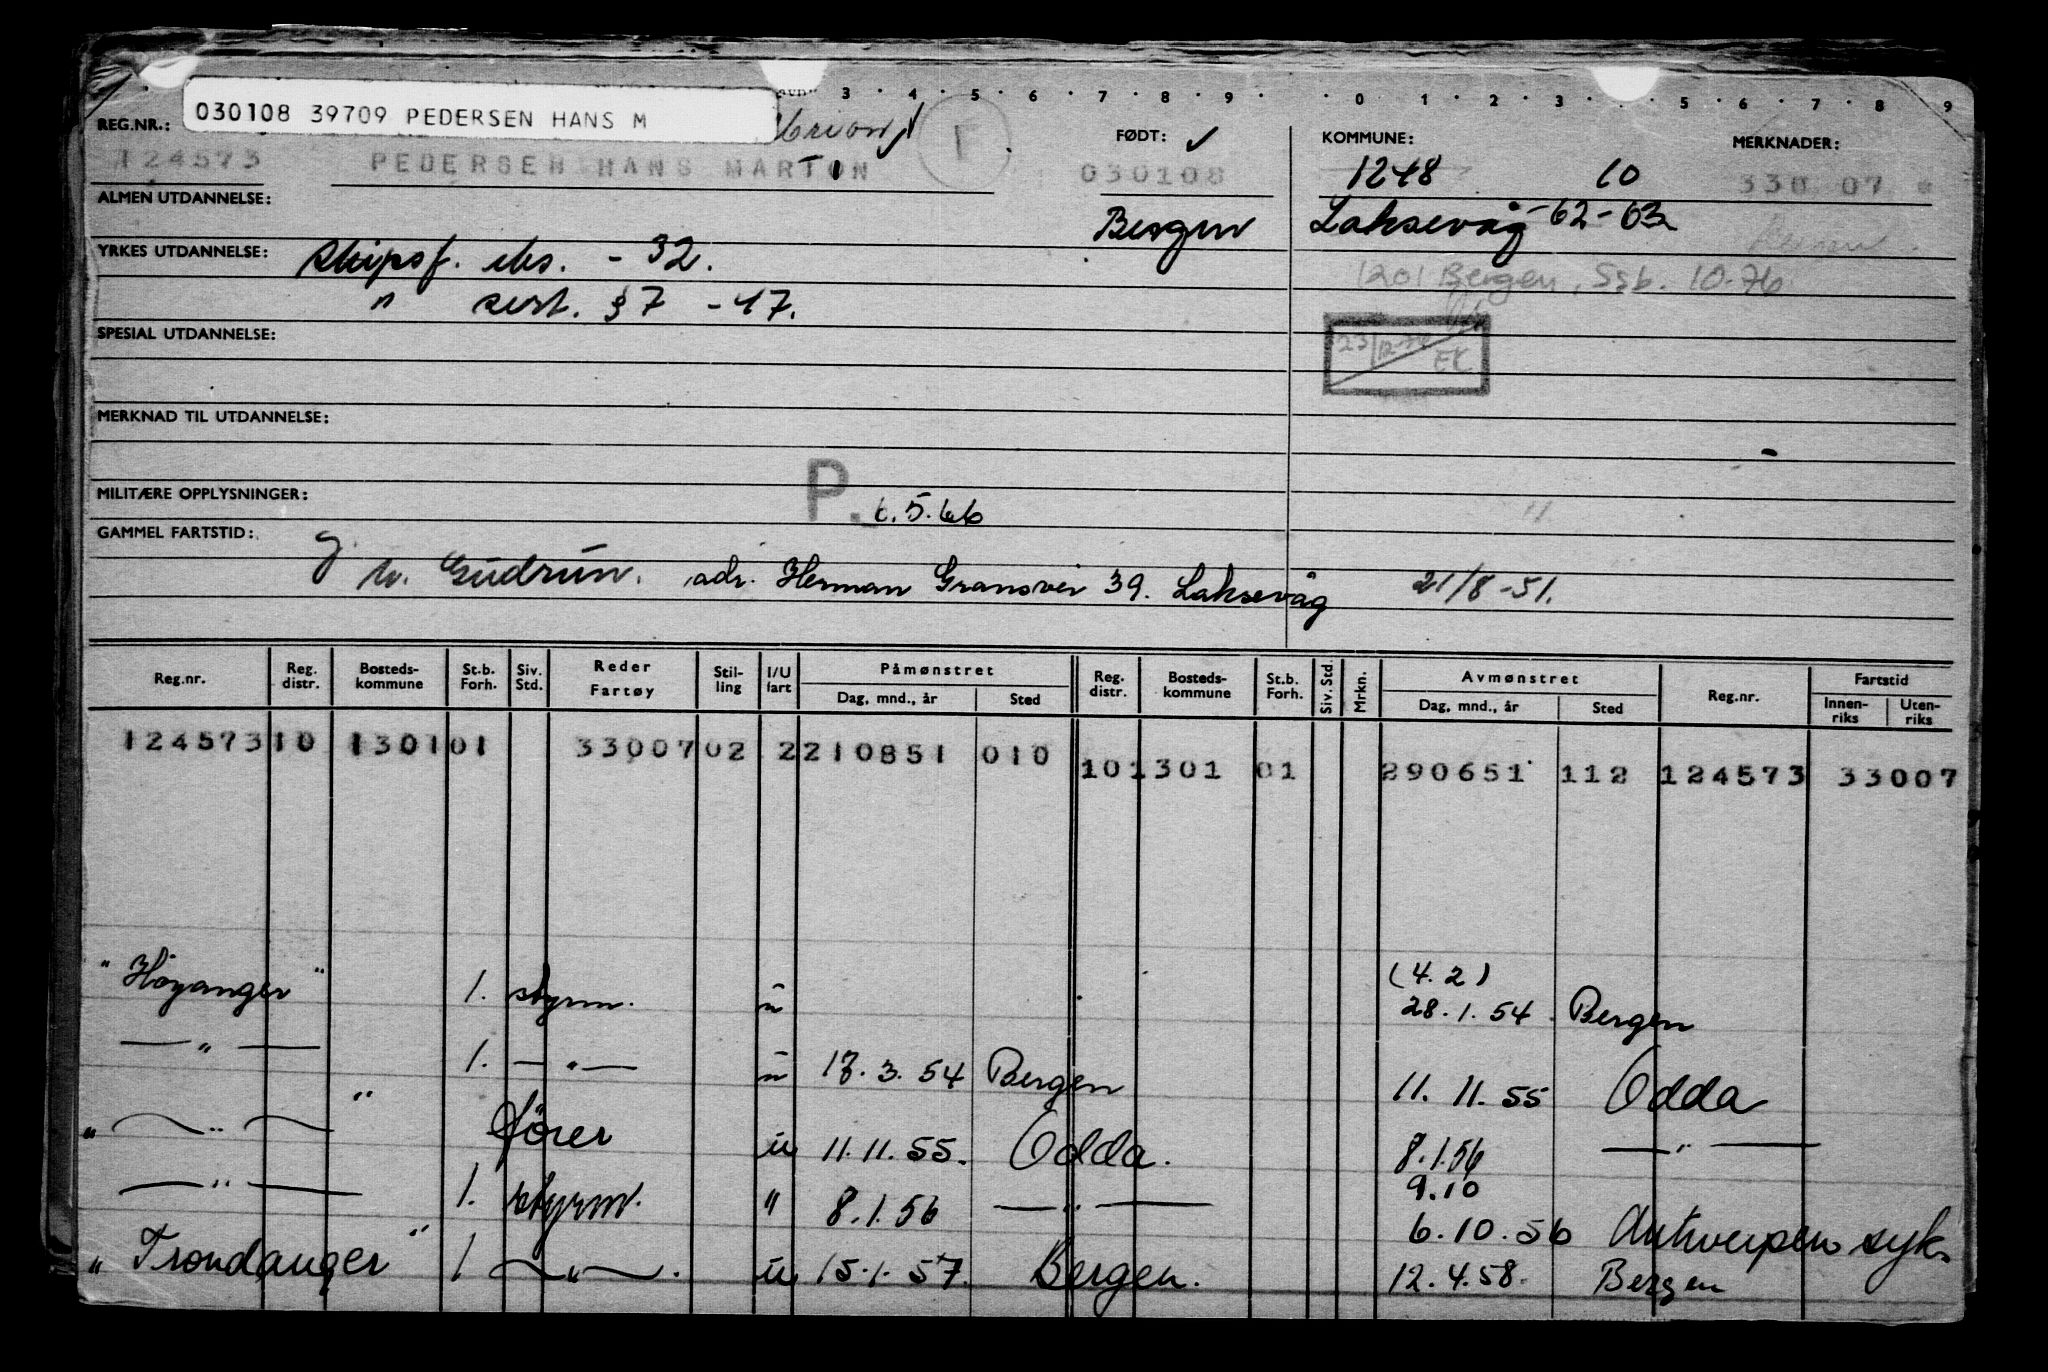 030108 39709 PEDERSEN HANS M
3 4 5 6 7 8 9 0 1 2 3 5 6 7 8 9
REG.NR.: FØDT: ✓ KOMMUNE: MERKNADER:
124573 PEDERSEN HANS MARTON 030108 1248 10 330 07
ALMEN UTDANNELSE: Bergen Laksevåg -62-63
YRKES UTDANNELSE: skipsf. eks. - 32.
1201 Bergen, Ssb. 10-76
" sert. §7 - 47.
SPESIAL UTDANNELSE: EK
MERKNAD TIL UTDANNELSE:
MILITÆRE OPPLYSNINGER: P. 6.5.66
GAMMEL FARTSTID:
h. Gudrun. adr. Herman Gransvei 39. Laksevåg 21/8-51.
Reg.nr. Reg. distr. Bosteds-kommune St.b. Forh. Siv. Std. Reder Fartøy Stil-ling I/U fart Påmønstret Dag, mnd., år Sted Reg. distr. Bosteds-kommune St.b. Forh. Siv. Std. Mrkn. Avmønstret Dag, mnd., år Sted Reg.nr. Fartstid Innen-riks Uten-riks
124573 10 1301 01 33007 02 2 210851 010 10 1301 01 290651 112 124573 33007
"Höyanger" 1. styrm. u (4.2) 28.1.54 Bergen
— " — 1. — " — u 3.54 Bergen 11.11.55 Odda
" — " — " fører u 11.11.55. Odda. 8.1.56 — " —
— " — 1. styrm. " 8.1.56 — " — 9.10 6.10.56 Antwerpen syk.
"Trondanger" 1 — " — . u 15.1.57. Bergen. 12.4.58. Bergen